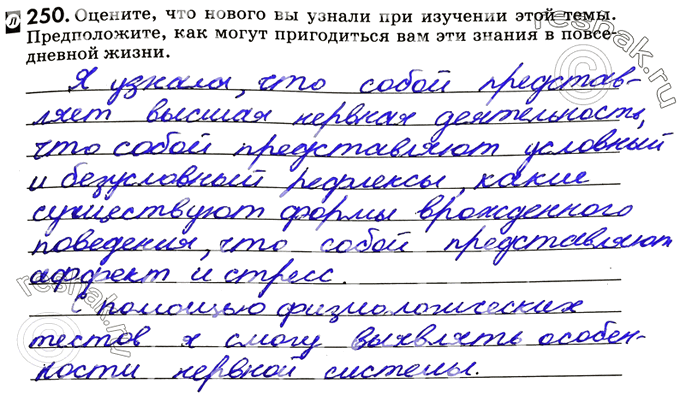 л 250. Оцените, что нового вы узнали при изучении этой темы.
Предположите, как могут пригодиться вам эти знания в повсе-
дневной жизни.
Я узнала, что собой представ-
ляет высшая нервная деятельность,
что собой представляют условный
и безусловный рефлексы, какие
существуют формы врожденного
поведения, что собой представляют
аффект и стресс.
С помощью физиологических
тестов я смогу выявлять особен-
ности нервной системы.
reshak.ru
reshak.ru
reshak.ru